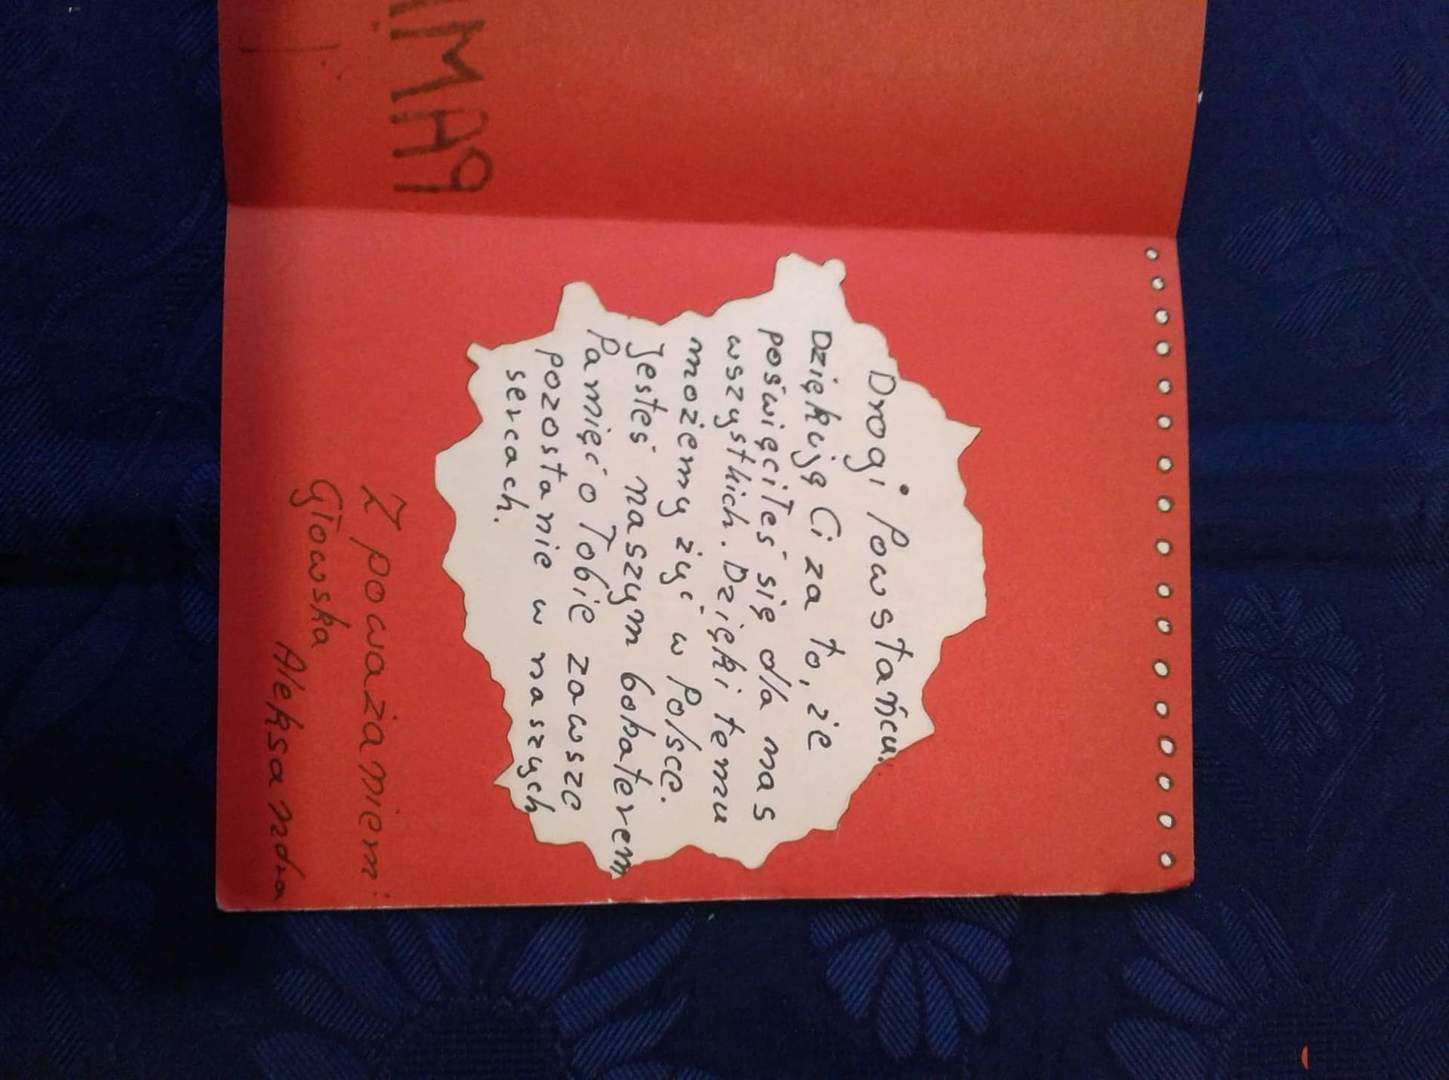 Drogi Powstańcu.
Dziękuję Ci za to, że
poświęciłeś się dla nas
wszystkich. Dzięki temu
możemy żyć w Polsce.
Jesteś naszym bohaterem
Pamięć o Tobie zawsze
pozostanie w naszych
sercach.
Z poważaniem:
Głowska
Aleksandra